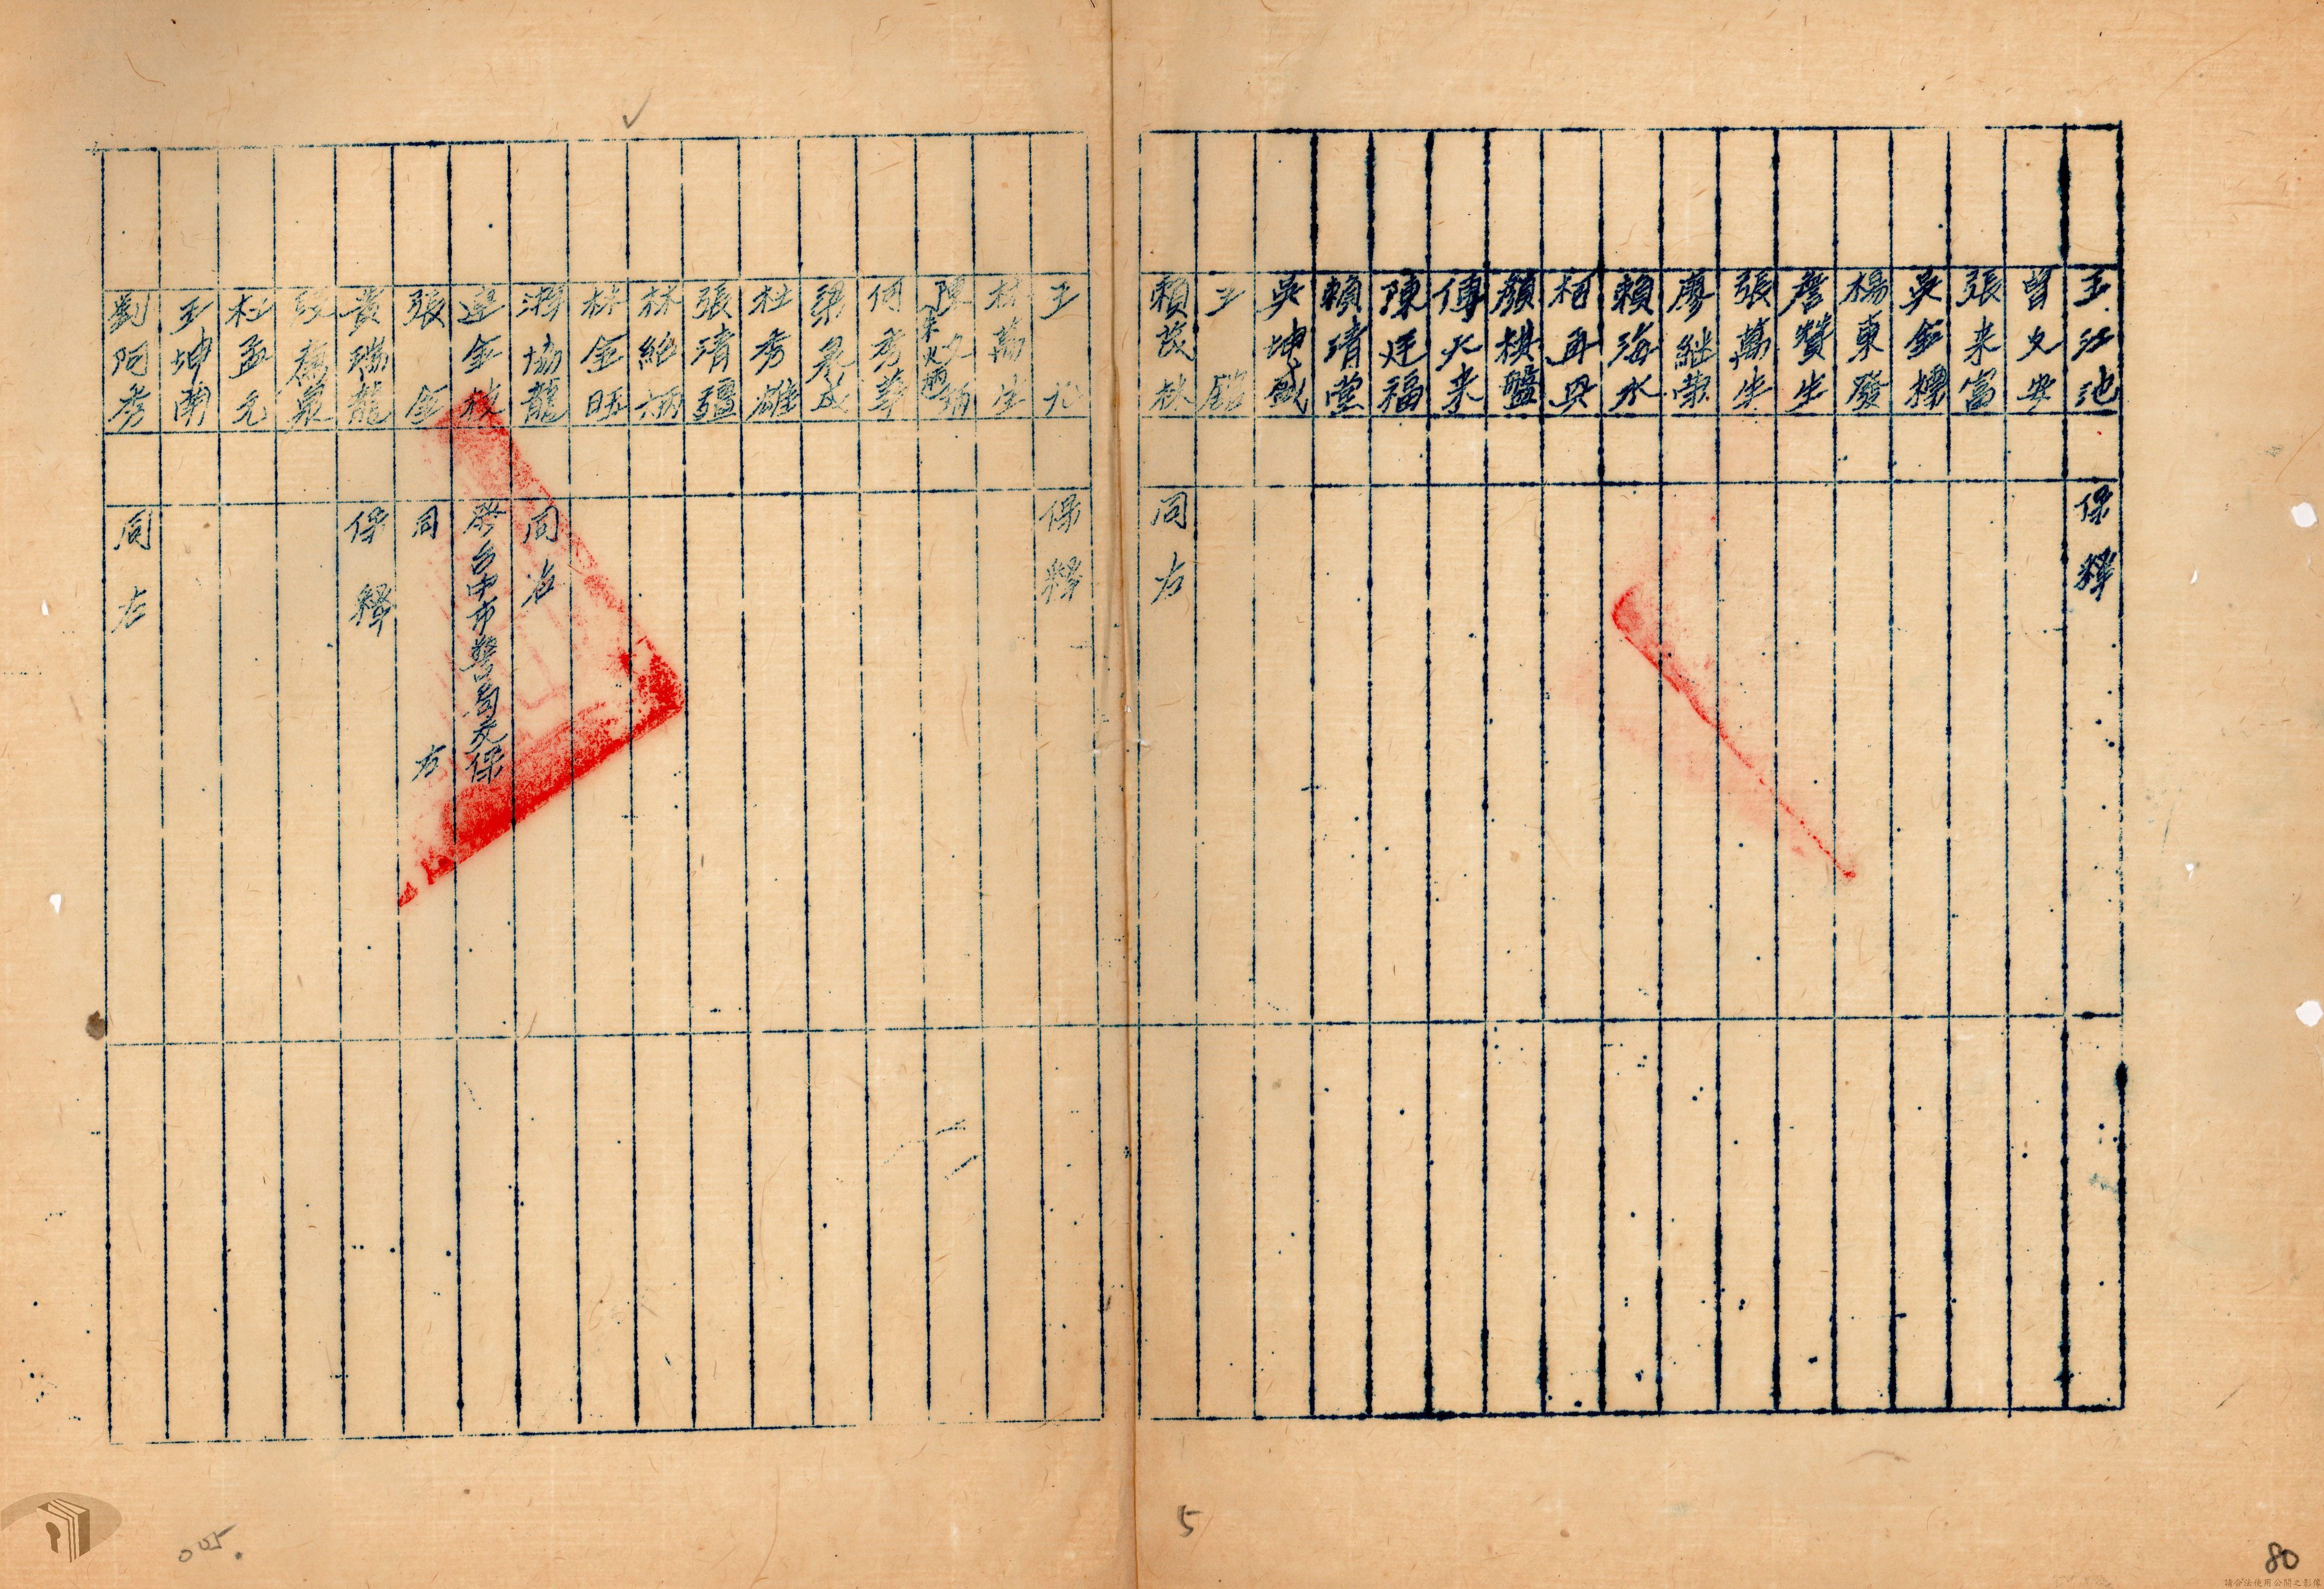 王江池 保釋
曾文安
張来富
吳金標
楊東發
詹贊生
張萬生
廖継榮
賴海水
柯再興
顏棋盤
傅火来
陳廷福
賴清堂
吳坤盛
王
賴茂林 同右
王 保釋
林萬生
何秀華
梁泉成
杜秀雄
張清疆
林紹炳
林金旺
協龍 同右
金枝 發台中市警局交保
張金 同右
黄瑞龍 保釋
杜孟元
王坤南
劉阿秀 同右
5
005.
80
請合法使用公開之影像